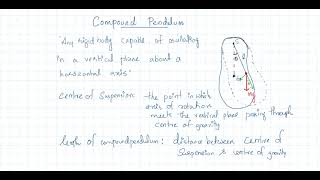 Compound Pendulum
"Any rigid body capable of oscillating
in a vertical plane about a
horizontal axis"
Centre of Suspension: the point in which
axis of rotation
meets the vertical plane passing through
centre of gravity
length of compound pendulum: distance between Centre of
Suspension & centre of gravity